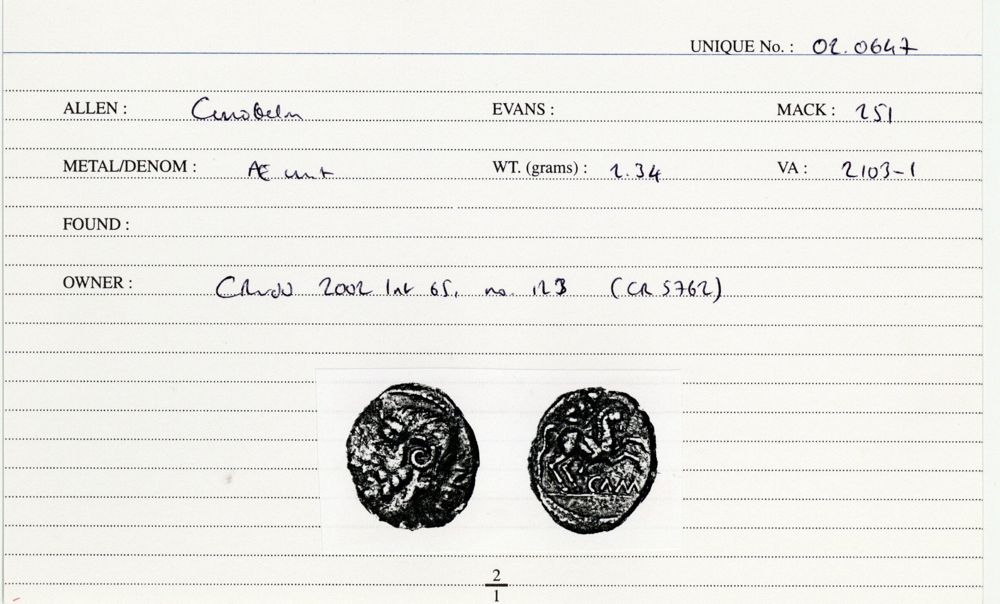 UNIQUE No. : 02.0647
ALLEN : Cunobelin EVANS : MACK : 251
METAL/DENOM : Æ unit WT. (grams) : 2.34 VA : 2103-1
FOUND :
OWNER : 2002 65, no. 123 (CR 5762)
CAM
2
1